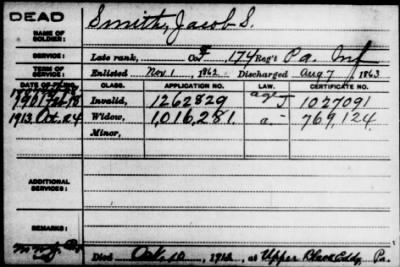 DEAD
NAME OF SOLDIER:
Smith, Jacob S.
SERVICE:
Late rank, Co. F 174 Reg't Pa. Inf
TERM OF SERVICE:
Enlisted Nov. 1, 1862. Discharged Aug 7, 1863
DATE OF FILING. CLASS. APPLICATION NO. LAW. CERTIFICATE NO.
Invalid, 1262829 J 1027091
1913. Oct. 24 Widow, 1,016,281. 769,124.
Minor,
ADDITIONAL SERVICES:
REMARKS:
Died Oct. 10, 1913, at Upper Black Eddy, Pa.